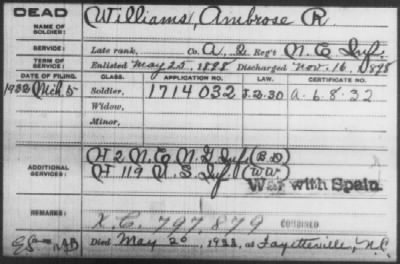 DEAD
NAME OF SOLDIER: Williams, Ambrose R.
SERVICE: Late rank, Co. A, 2 Reg't N.C. Inf.
TERM OF SERVICE: Enlisted May 25, 1898 Discharged Nov. 16, 1898
DATE OF FILING. CLASS. APPLICATION NO. LAW. CERTIFICATE NO.
1932 Mch 5 Soldier, 1714032 J.2.30 a.6.8.32
Widow,
Minor,
ADDITIONAL SERVICES: H 2 N.C. N.G. Inf.
H 119 U.S. Inf. (WW)
War with Spain
REMARKS: X.C. 797,879 COMBINED
Died May 20, at Fayetteville, N.C.